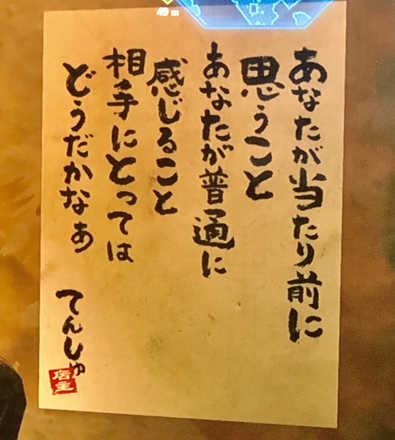 あなたが当たり前に
思うこと
あなたが普通に
感じること
相手にとっては
どうだかなぁ
てんしゅ
店主